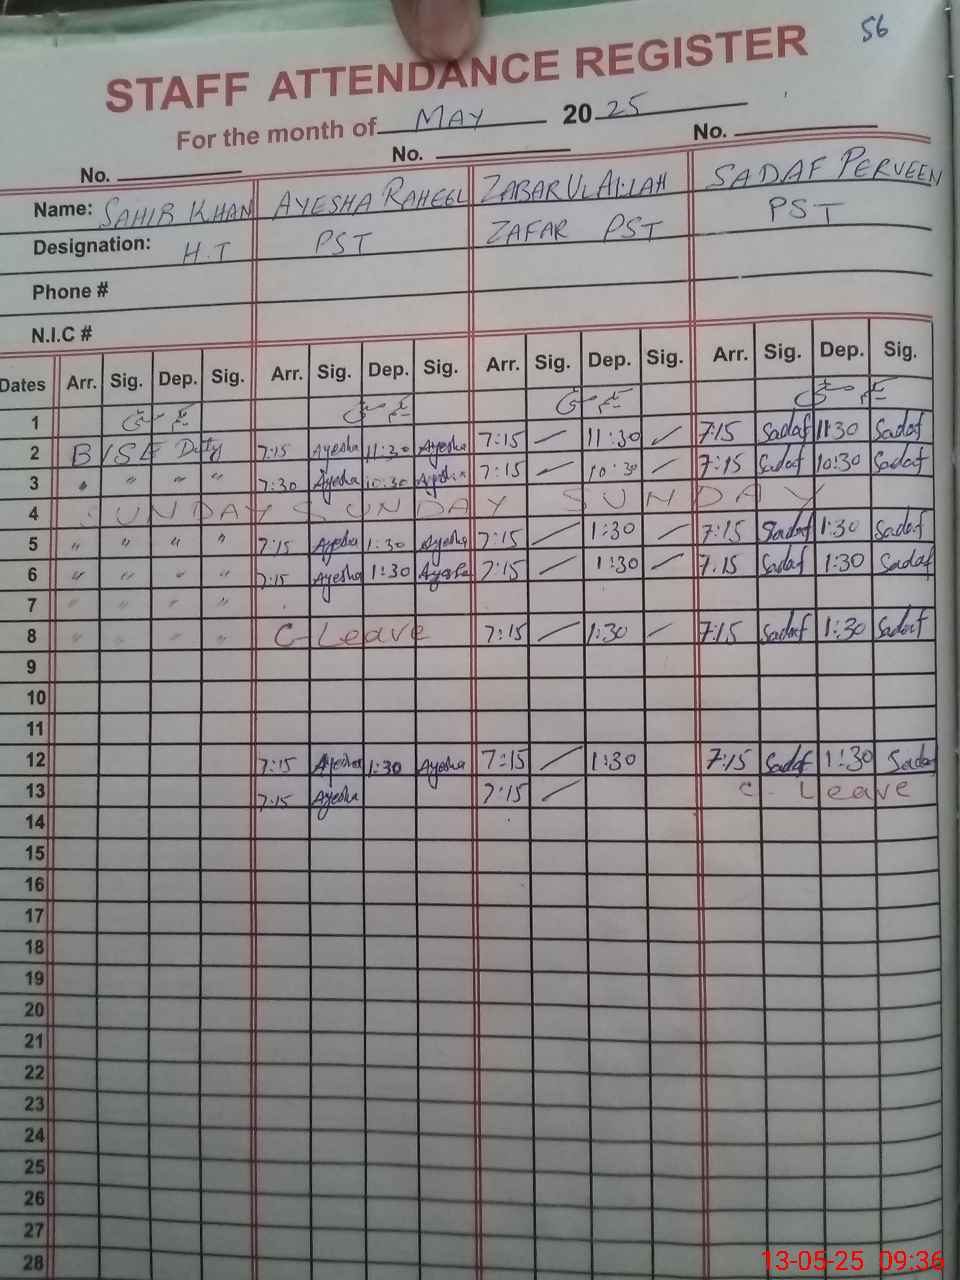 56
STAFF ATTENDANCE REGISTER
For the month of MAY 20 25
No. No. No.
Name: SAHIB KHAN AYESHA RAHEEL ZABARULALLAH SADAF PERVEEN
Designation: H.T PST ZAFAR PST PST
Phone #
N.I.C #
Dates Arr. Sig. Dep. Sig. Arr. Sig. Dep. Sig. Arr. Sig. Dep. Sig. Arr. Sig. Dep. Sig.
1
2 BISE Duty 7:15 Ayesha 11:30 Ayesha 7:15 11:30 7:15 Sadaf 11:30 Sadaf
3 " " " 7:30 Ayesha 10:30 Ayesha 7:15 10:30 7:15 Sadaf 10:30 Sadaf
4 SUNDAY SUNDAY SUNDAY
5 " " " " 7:15 Ayesha 1:30 Ayesha 7:15 1:30 7:15 Sadaf 1:30 Sadaf
6 " " " " 7:15 Ayesha 1:30 Ayesha 7:15 1:30 7.15 Sadaf 1:30 Sadaf
7 " " " "
8 " " " " C-Leave 7:15 1:30 7:15 Sadaf 1:30 Sadaf
9
10
11
12 7:15 Ayesha 1:30 Ayesha 7:15 1:30 7:15 Sadaf 1:30 Sadaf
13 7:15 Ayesha 7:15 C-Leave
14
15
16
17
18
19
20
21
22
23
24
25
26
27
28
13-05-25 09:36